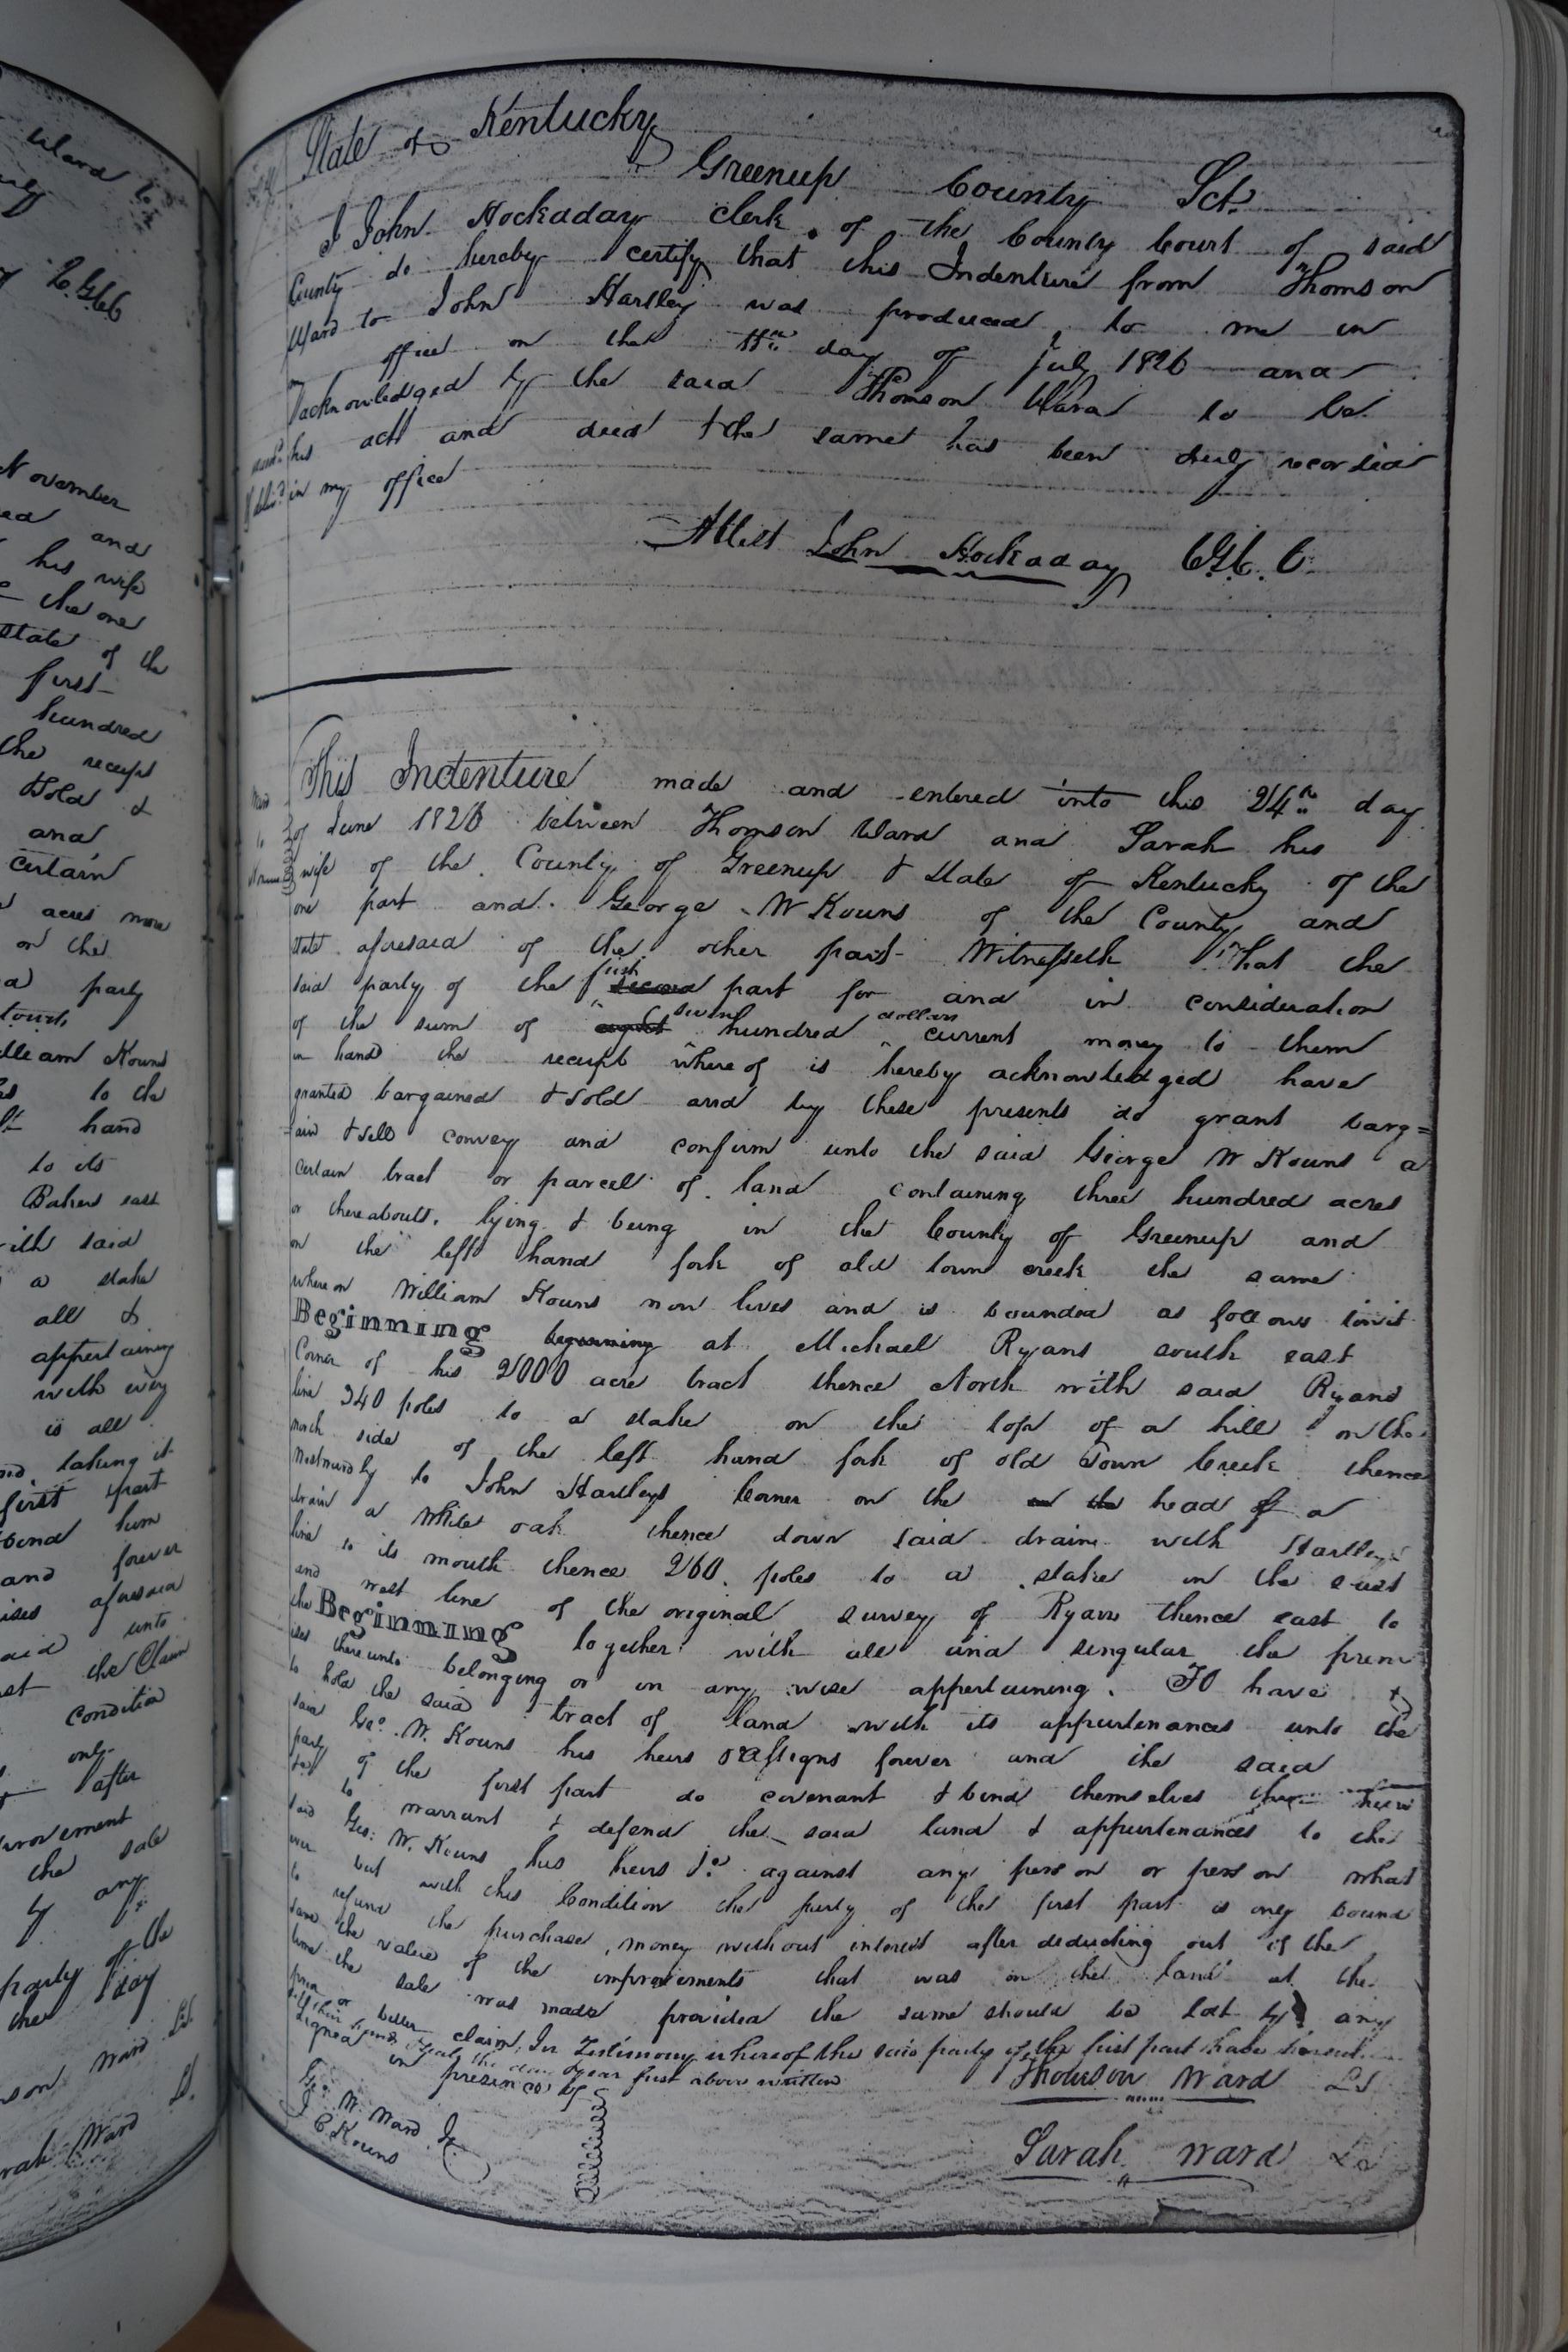 State of Kentucky
Greenup County Sct.
I John Hockaday clerk of the County Court of said
County do hereby certify that this Indenture from Thomson
Ward to John Hartley was produced to me in
my office on the 11th day of July 1826 and
acknowledged by the said Thomson Ward to be
his act and deed & the same has been duly recorded
in my office
Attest John Hockaday C.G.C.C.
This Indenture made and entered into this 24th day
of June 1826 between Thomson Ward and Sarah his
wife of the County of Greenup & State of Kentucky of the
one part and George W Kouns of the County and
State aforesaid of the other part Witnesseth That the
said party of the first second part for and in consideration
of the sum of eight seven hundred dollars current money to them
in hand the receipt whereof is hereby acknowledged have
granted bargained & sold and by these presents do grant barg=
ain & sell convey and confirm unto the said George W Kouns a
certain tract or parcel of land containing three hundred acres
or thereabouts, lying & being in the County of Greenup and
on the left hand fork of old town creek the same
where on William Kouns now lives and is bounded as follows towit
Beginning beginning at Michael Ryans south east
Corner of his 2000 acre tract thence North with said Ryans
line 340 poles to a stake on the top of a hill on the
north side of the left hand fork of old Town Creek thence
Westwardly to John Hartleys Corner on the on the head of a
drain a White oak thence down said drain with Hartleys
line to its mouth thence 260 poles to a stake in the east
and west line of the original survey of Ryans thence east to
the Beginning together with all and singular the prem
ises thereunto belonging or in any wise appertaining. To have &
to hold the said tract of land with its appurtenances unto the
said Geo. W. Kouns his heirs or assigns forever and the said
party of the first part do covenant & bind themselves their heirs
to warrant & defend the said land & appurtenances to the
said Geo: W. Kouns his heirs &c. against any person or person what
ever but with this Condition the party of the first part is only bound
to refund the purchase money without interest after deducting out of the
same the value of the improvements that was on the land at the
time the sale was made provided the same should be lost by any
prior or better claim, In Testimony whereof the said party of the first part have hereunto
set their hands & seals the day & year first above written
Signed in presence of Thomson Ward LS
Geo. W. Ward Jr
J C Kouns
Sarah Ward LS
November
and
his wife
the one
State of the
first
hundred
the receipt
& sold &
and
certain
acres more
on the
party
William Kouns
to the
hand
to its
Bakers east
with said
a stake
all &
appertaining
with every
is all
taking it
first part
bind him
and forever
aforesaid
unto
the Claim
Condition
only
after
improvement
the sale
by any
party of the
the day
Ward LS
Sarah Ward